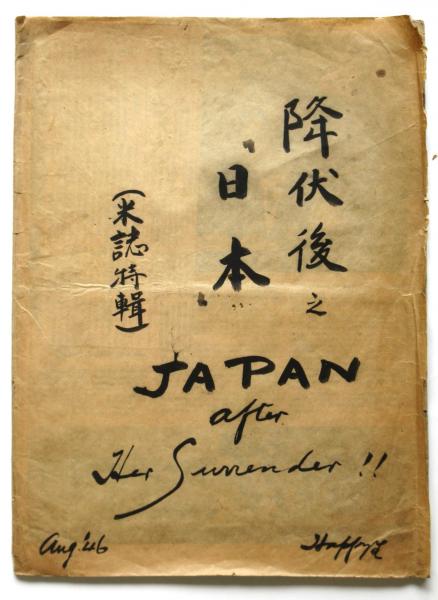 降伏後之
日本
(米誌特輯)
JAPAN
after
Her Surrender!!
Aug.'46